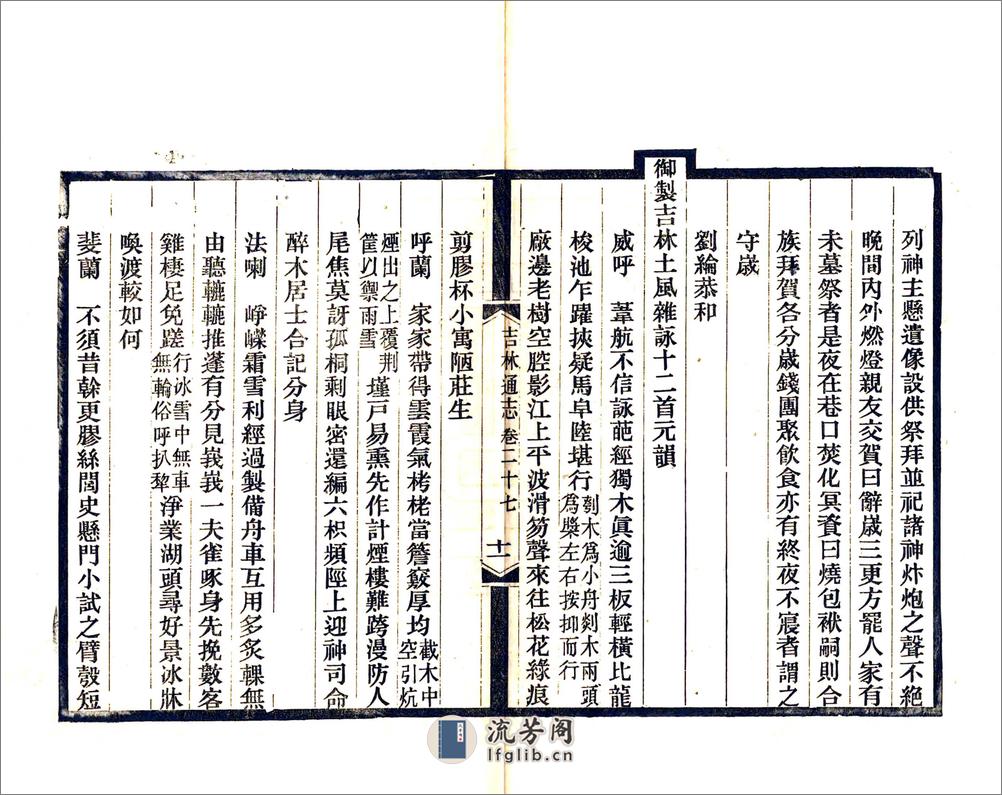 列神主懸遺像設供祭拜並祀諸神炸炮之聲不絕
晚間內外燃燈親友交賀曰辭歲三更方罷人家有
未墓祭者是夜在巷口焚化冥賚曰燒包袱嗣則合
族拜賀各分歲錢團聚飲食亦有終夜不寢者謂之
守歲
劉綸恭和
御製吉林土風雜詠十二首元韻
威呼　葦航不信詠葩經獨木眞逾三板輕橫比龍
梭池乍躍挾疑馬阜陸堪行刳木爲小舟剡木兩頭
爲槳左右按抑而行
廠邊老樹空腔影江上平波滑笏聲來往松花綠痕
吉林通志 卷二十七 十一
剪膠杯小寓陋莊生
呼蘭　家家帶得雲霞氣栲栳當簷竅厚均截木中
空引炕
煙出之上覆荆
筐以禦雨雪
墐戸易熏先作計煙樓難跨漫防人
尾焦莫訝孤桐剩眼密還編六枳頻陘上迎神司命
醉木居士合記分身
法喇　崢嶸霜雪利經過製備舟車互用多炙輠無
由聽轆轆推蓬有分見峩峩一夫雀啄身先挽數客
雞棲足免蹉行冰雪中無車
無輪俗呼扒犂
淨業湖頭尋好景冰牀
喚渡較如何
斐蘭　不須昔榦更膠絲閭史懸門小試之臂彀短
流芳阁
lfglib.cn